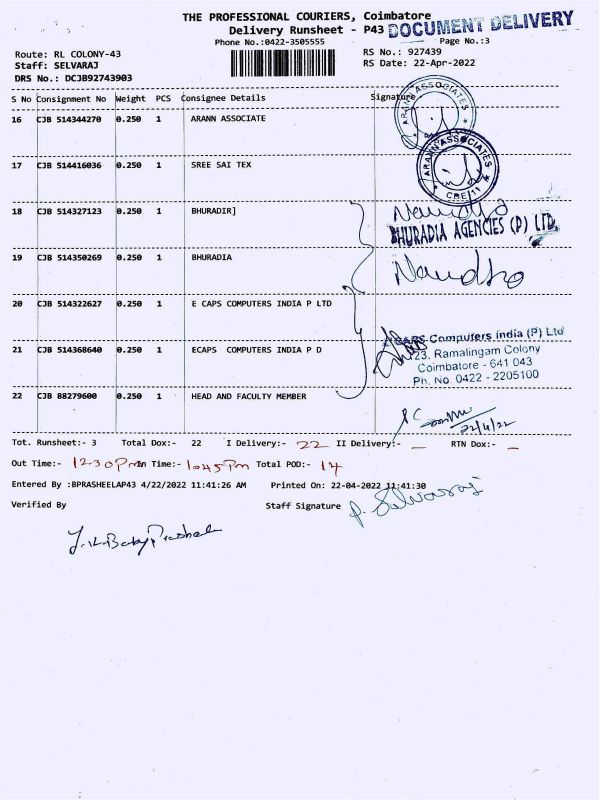 THE PROFESSIONAL COURIERS, Coimbatore
Delivery Runsheet - P43 DOCUMENT DELIVERY
Phone No.:0422-3505555 Page No.:3
Route: RL COLONY-43 RS No.: 927439
Staff: SELVARAJ RS Date: 22-Apr-2022
DRS No.: DCJB92743903
S No Consignment No Weight PCS Consignee Details Signature
16 CJB 514344270 0.250 1 ARANN ASSOCIATE
ARANN ASSOCIATES
17 CJB 514416036 0.250 1 SREE SAI TEX
ARANN ASSOCIATES
CBE 11
18 CJB 514327123 0.250 1 BHURADIR]
BHURADIA AGENCIES (P) LTD.
19 CJB 514350269 0.250 1 BHURADIA
20 CJB 514322627 0.250 1 E CAPS COMPUTERS INDIA P LTD
Computers india (P) Ltd
21 CJB 514368640 0.250 1 ECAPS COMPUTERS INDIA P D
23, Ramalingam Colony
Coimbatore - 641 043
Ph. No. 0422 - 2205100
22 CJB 88279600 0.250 1 HEAD AND FACULTY MEMBER
22/4/22
Tot. Runsheet:- 3 Total Dox:- 22 I Delivery:- 22 II Delivery:- RTN Dox:-
Out Time:- 12.30 Pm In Time:- 10.45 Pm Total POD:- 14
Entered By :BPRASHEELAP43 4/22/2022 11:41:26 AM Printed On: 22-04-2022 11:41:30
Verified By Staff Signature P. Selvaraj